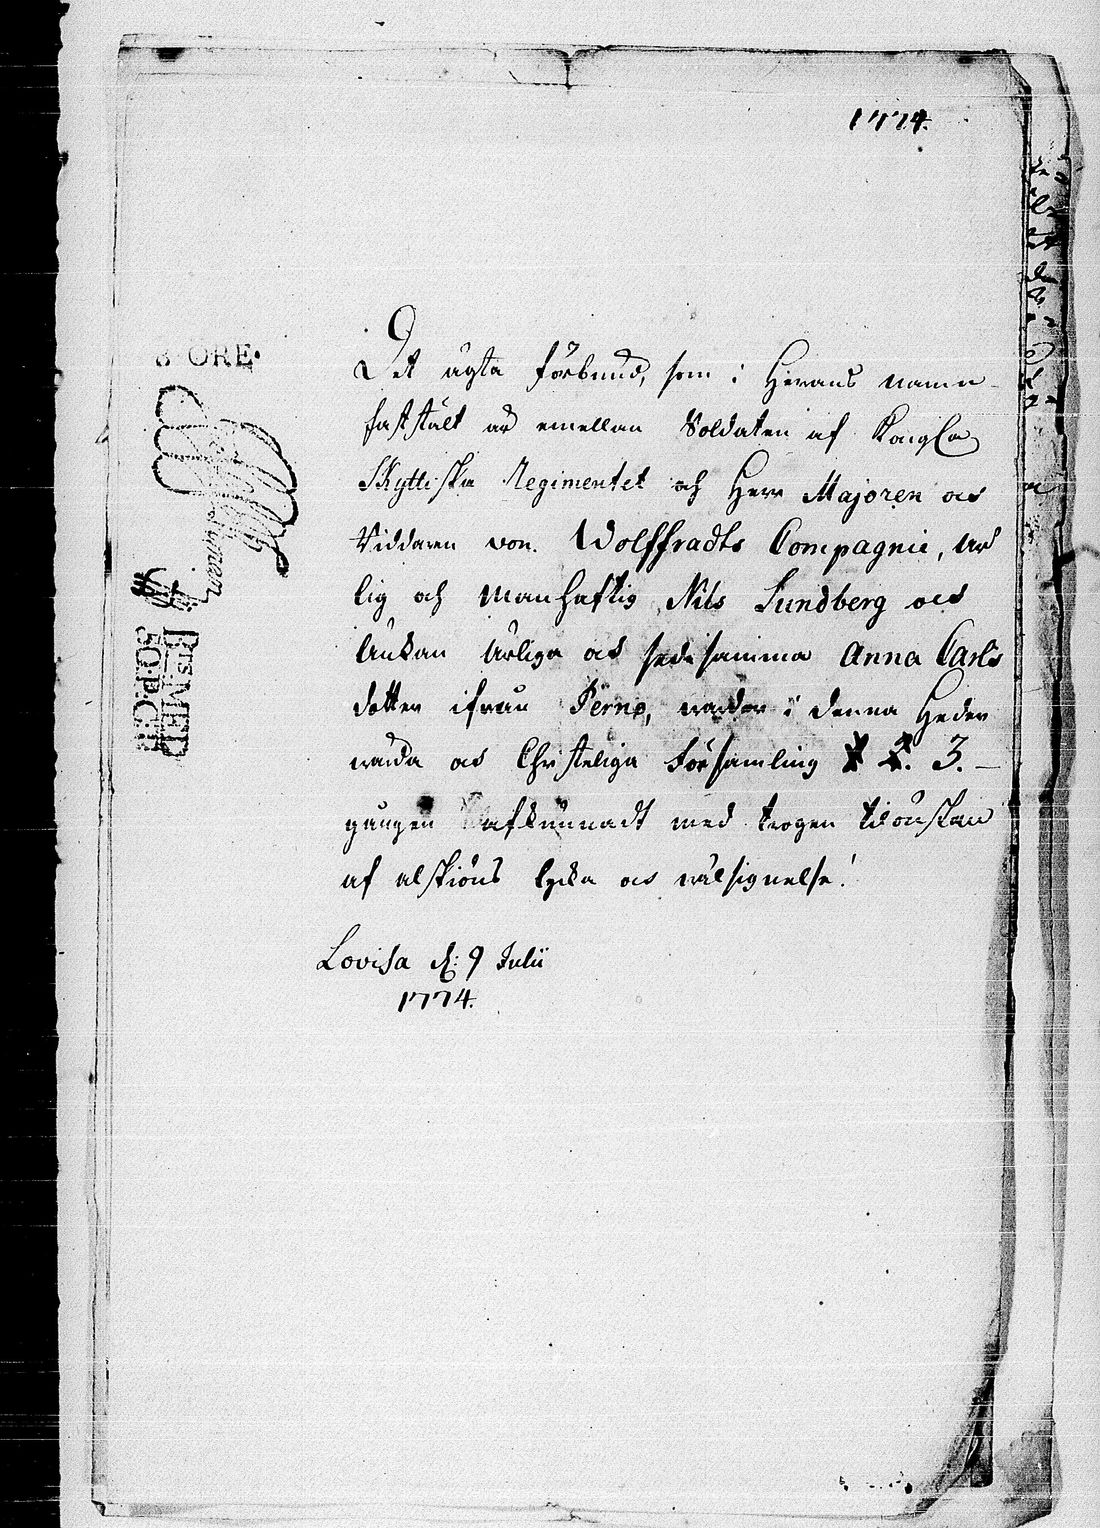 1774.
8 ÖRE.
Det ägta förbund, som i Herans namn
fastställt är emellan Soldaten af Kongl.
Skyttiska Regimentet och Herr Majoren och
Riddaren von. Wolffradts Compagnie, Är
lig och Manhaftig Nils Lundberg och
Änkan Ärliga och sedesamma Anna Carls
dotter ifrån Perno, warder i denna Heder
wärda och Christeliga Församling 3.
gången afkunnadt med trogen tilönskan
af alskiöns lycka och wälsignelse!
Lovisa d: 9 Julii
1774.